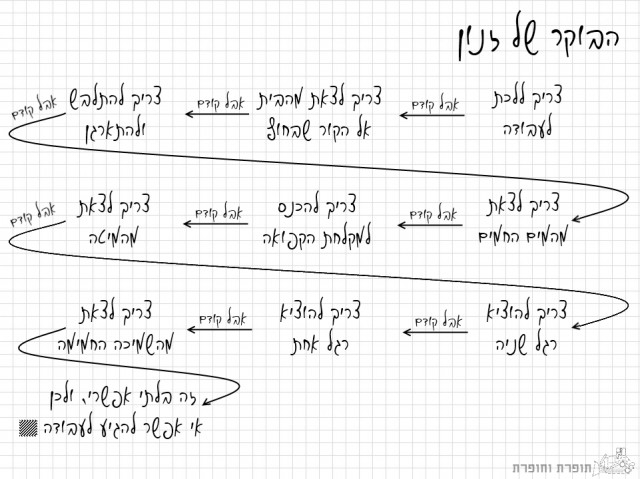 הבוקר של זנון
צריך ללכת לעבודה
אבל קודם
צריך לצאת מהבית אל הקור שבחוץ
אבל קודם
צריך להתלבש ולהתארגן
אבל קודם
צריך לצאת מהמים החמים
אבל קודם
צריך להכנס למקלחת הקפואה
אבל קודם
צריך לצאת מהמיטה
אבל קודם
צריך להוציא רגל שניה
אבל קודם
צריך להוציא רגל אחת
אבל קודם
צריך לצאת מהשמיכה החמימה
זה בלתי אפשרי, ולכן
אי אפשר להגיע לעבודה
תופרת וחופרת